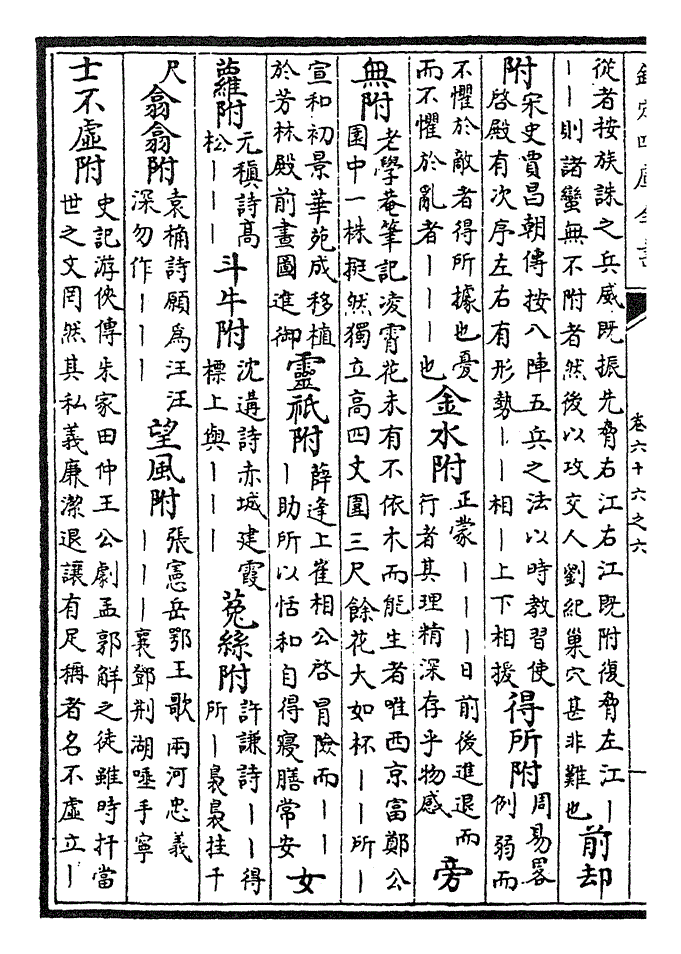 欽定四庫全書
卷六十六之六
從者按族誅之兵威既振先脅右江右江既附復脅左江丨
丨丨則諸蠻無不附者然後以攻交人劉紀巢穴甚非難也
前却
附
宋史賈昌朝傳按八陣五兵之法以時教習使
啓殿有次序左右有形勢丨丨相丨上下相援
得所附
周易畧
例弱而
不懼於敵者得所據也憂
而不懼於亂者丨丨丨也
金水附
正蒙丨丨丨日前後進退而
行者其理精深存乎物感
旁
無附
老學菴筆記凌霄花未有不依木而能生者唯西京富鄭公
園中一株挺然獨立高四丈圍三尺餘花大如杯丨丨所丨
宣和初景華苑成移植
於芳林殿前畫圖進御
靈祇附
薛逢上崔相公啓冒險而丨丨
丨助所以恬和自得寢膳常安
女
蘿附
元稹詩髙
松丨丨丨
斗牛附
沈遘詩赤城建霞
標上與丨丨丨
菟絲附
許謙詩丨丨得
所丨裊裊挂千
尺
翕翕附
袁桷詩願為汪汪
深勿作丨丨丨
望風附
張憲岳鄂王歌兩河忠義
丨丨丨襄鄧荆湖唾手寧
士不虛附
史記游俠傳朱家田仲王公劇孟郭解之徒雖時扞當
世之文罔然其私義廉潔退讓有足稱者名不虛立丨